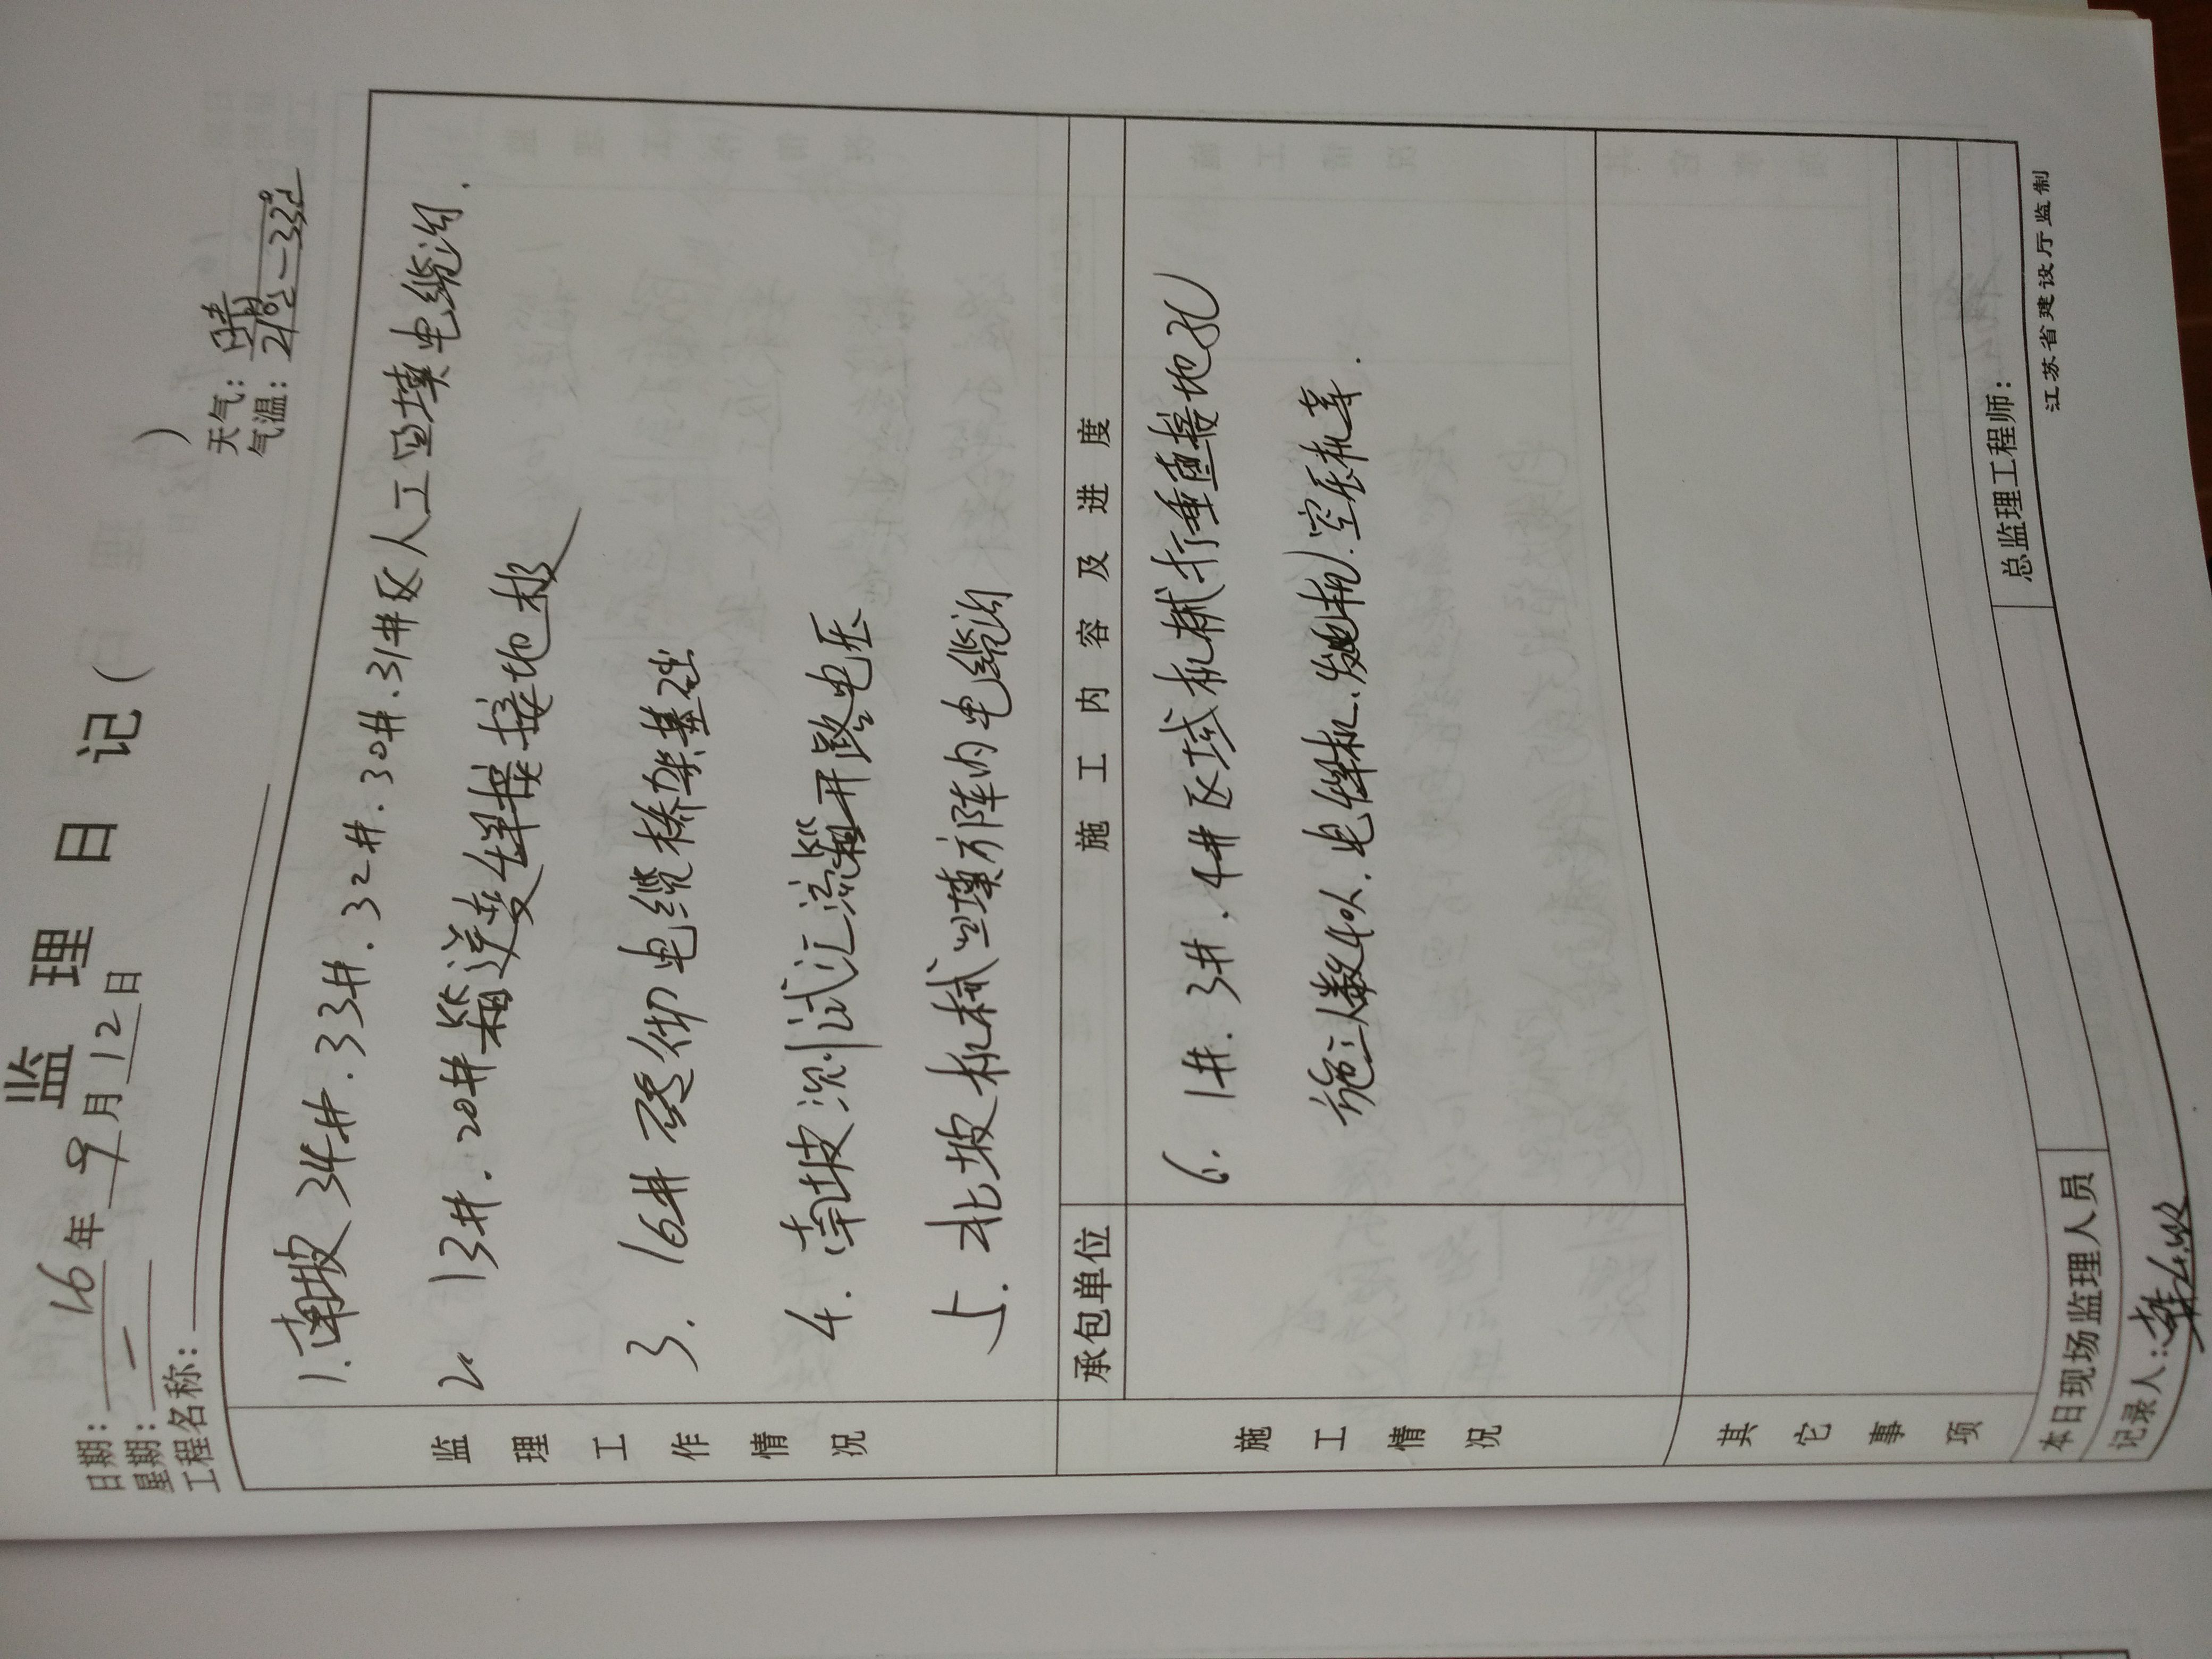 监 理 日 记 ( )
日期: 16 年 9 月 12 日 天气: 晴
星期: 一 气温: 21℃-33℃
工程名称:
监理工作情况
1.南坡34#.33#.32#.30#.31#区人工回填电缆沟.
2. 13#.20#箱逆变焊接接地极
3. 16# 电缆桥架基础
4. 南坡测试汇流箱开路电压
5. 北坡机械回填方阵内电缆沟
承包单位 施 工 内 容 及 进 度
施工情况
6. 1#.3#.4#区域机械打垂直接地孔
施工人数40人.电焊机.发电机.空压机等.
其它事项
本日现场监理人员
记录人: 总监理工程师:
江苏省建设厅监制